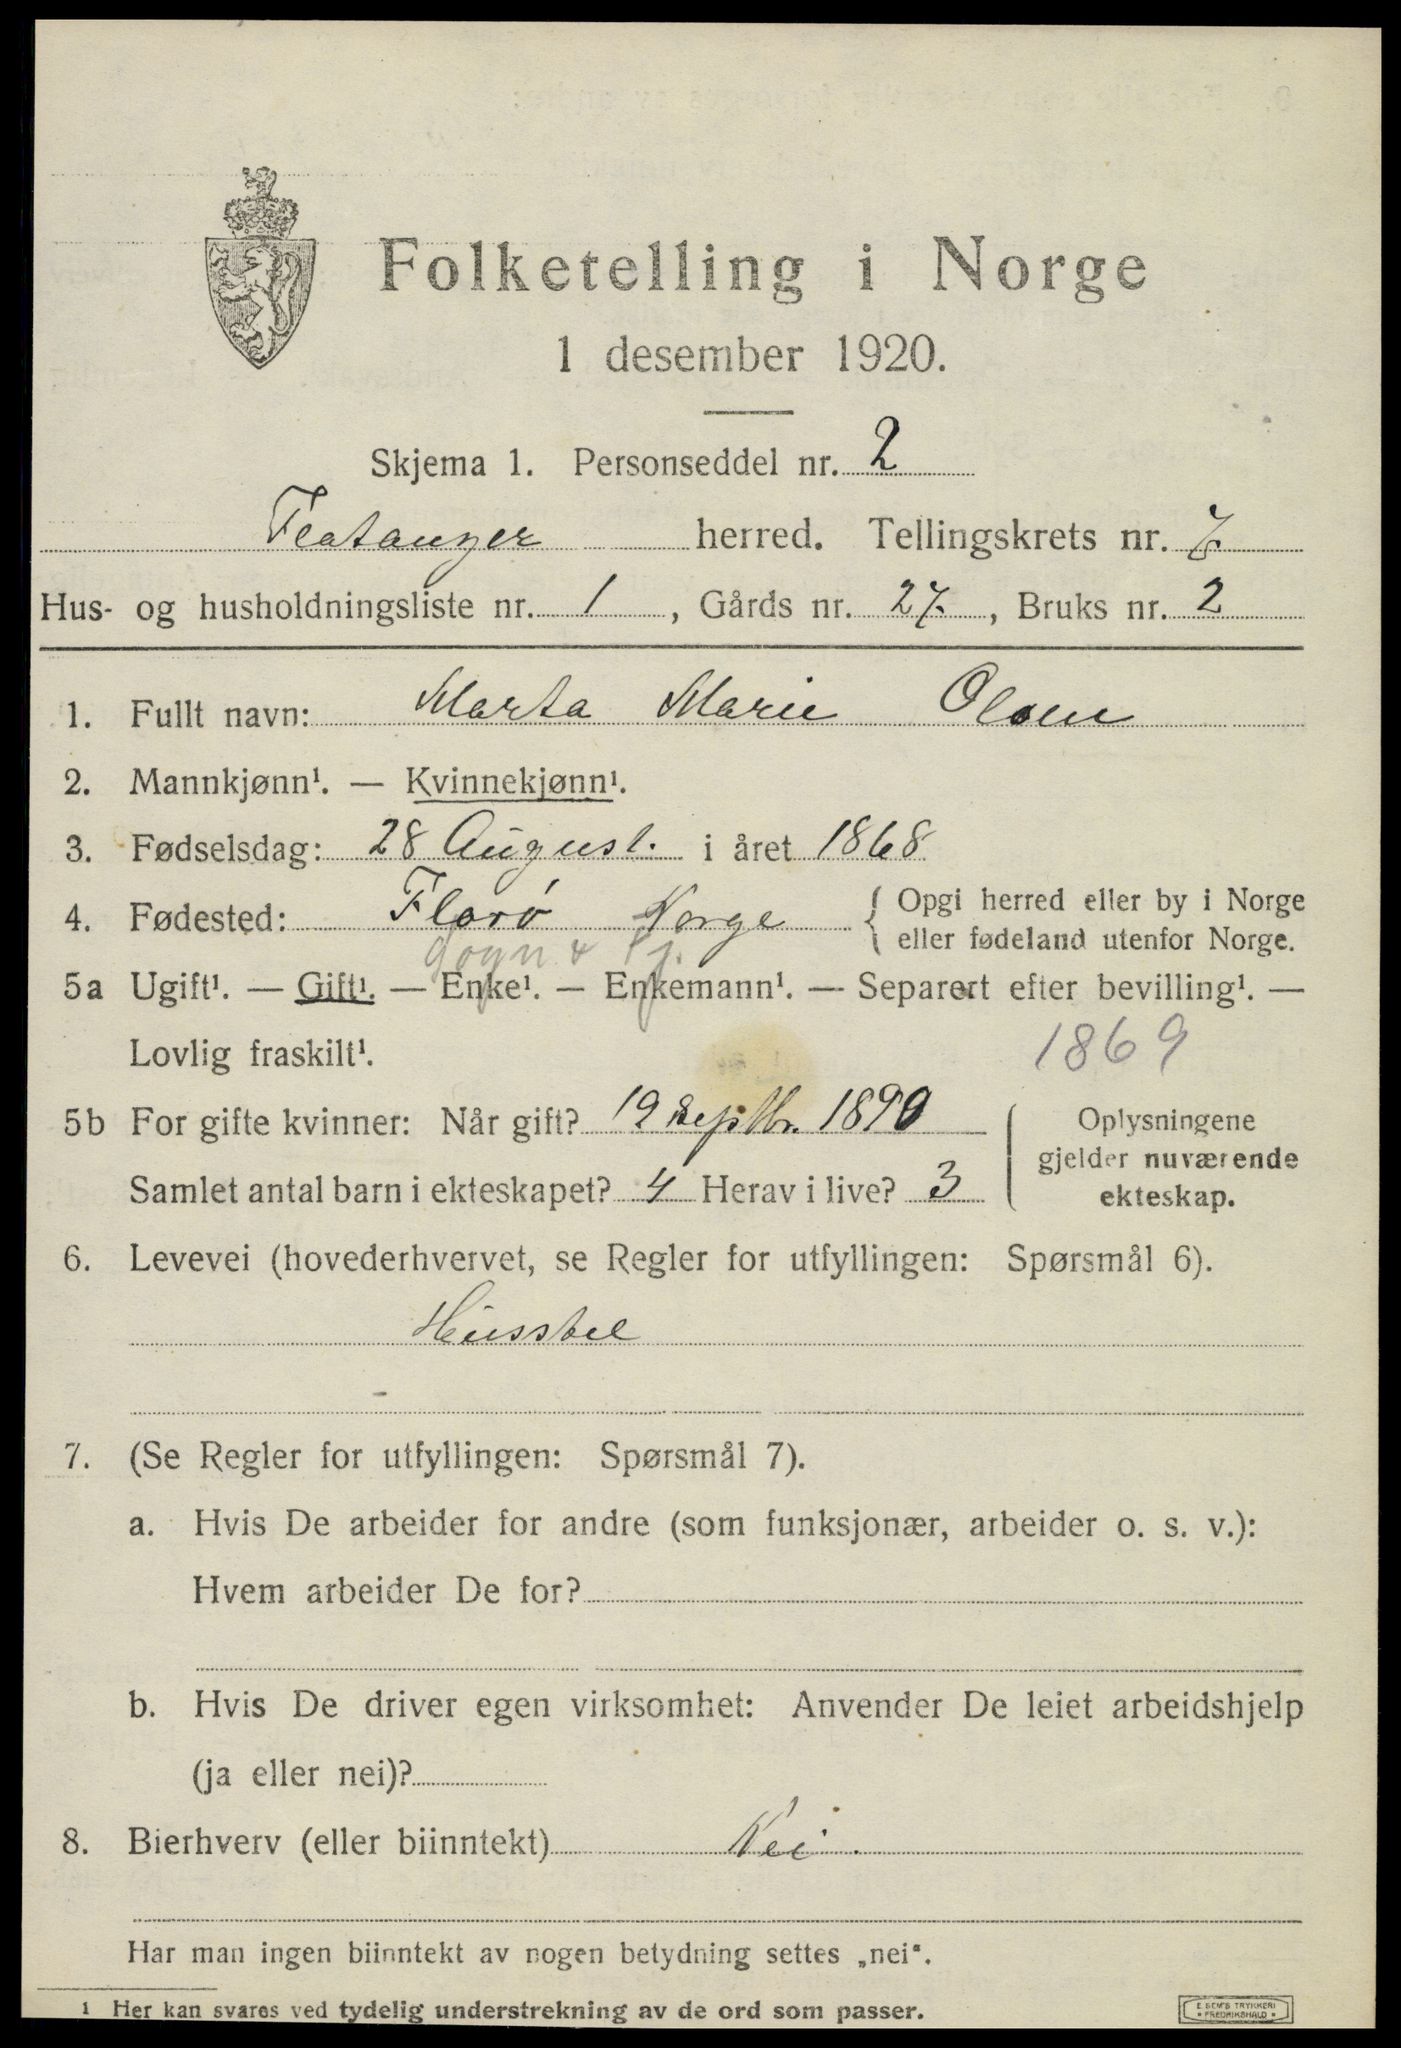 Folketelling i Norge
1 desember 1920.
Skjema 1. Personseddel nr. 2
Flatanger herred. Tellingskrets nr. 7
Hus- og husholdningsliste nr. 1, Gårds nr. 27., Bruks nr. 2
1. Fullt navn: Marta Marie Olsen
2. Mannkjønn¹. — Kvinnekjønn¹.
3. Fødselsdag: 28 August. i året 1868
4. Fødested: Florø Norge { Opgi herred eller by i Norge
eller fødeland utenfor Norge.
Sogn & Fj.
5a Ugift¹. — Gift¹. — Enke¹. — Enkemann¹. — Separert efter bevilling¹. —
Lovlig fraskilt¹. 1869
5b For gifte kvinner: Når gift? 19 Septbr. 1890
Samlet antal barn i ekteskapet? 4 Herav i live? 3
Oplysningene
gjelder nuværende
ekteskap.
6. Levevei (hovederhvervet, se Regler for utfyllingen: Spørsmål 6).
Husstel
7. (Se Regler for utfyllingen: Spørsmål 7).
a. Hvis De arbeider for andre (som funksjonær, arbeider o. s. v.):
Hvem arbeider De for?
b. Hvis De driver egen virksomhet: Anvender De leiet arbeidshjelp
(ja eller nei)?
8. Bierhverv (eller biinntekt) Nei.
Har man ingen biinntekt av nogen betydning settes „nei“.
1 Her kan svares ved tydelig understrekning av de ord som passer.
E. SEM'S TRYKKERI
• FREDRIKSHALD •